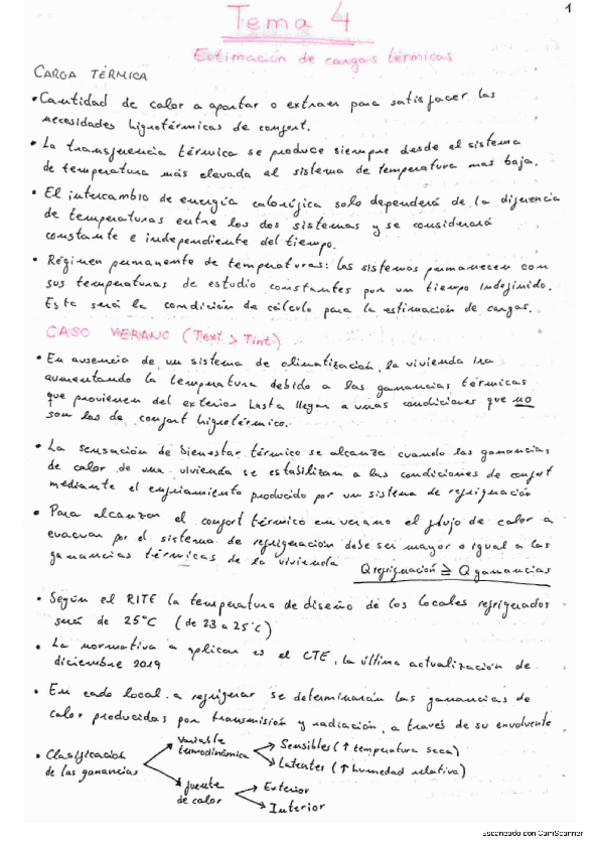 1
Tema 4
Estimación de cargas térmicas
CARGA TÉRMICA
• Cantidad de calor a aportar o extraer para satisfacer las
necesidades higrotérmicas de confort.
• La transferencia térmica se produce siempre desde el sistema
de temperatura más elevada al sistema de temperatura mas baja.
• El intercambio de energía calorífica solo dependerá de la diferencia
de temperaturas entre los dos sistemas y se considerará
constante e independiente del tiempo.
• Régimen permanente de temperaturas: los sistemas permanecen con
sus temperaturas de estudio constantes por un tiempo indefinido.
Esta será la condición de cálculo para la estimación de cargas.
CASO VERANO (Text > Tint)
• En ausencia de un sistema de climatización, la vivienda ira
aumentando la temperatura debido a las ganancias térmicas
que provienen del exterior hasta llegar a unas condiciones que no
son las de confort higrotérmico.
• La sensación de bienestar térmico se alcanza cuando las ganancias
de calor de una vivienda se estabilizan a las condiciones de confort
mediante el enfriamiento producido por un sistema de refrigeración
• Para alcanzar el confort térmico en verano el flujo de calor a
evacuar por el sistema de refrigeración debe ser mayor o igual a las
ganancias térmicas de la vivienda Q refrigeración ≥ Q ganancias
• Según el RITE la temperatura de diseño de los locales refrigerados
será de 25°C (de 23 a 25°C)
• La normativa a aplicar es el CTE, la última actualización de
diciembre 2019
• En cada local a refrigerar se determinarán las ganancias de
calor producidas por transmisión y radiación, a través de su envolvente
• Clasificación de las ganancias
variable termodinámica
Sensibles (↑ temperatura seca)
Latentes (↑ humedad relativa)
fuente de calor
Exterior
Interior
Escaneado con CamScanner